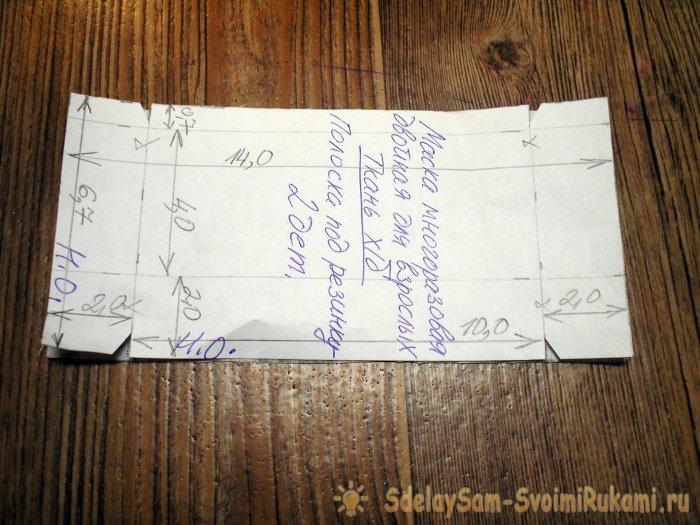 Маска многоразовая
двойная для взрослых
Ткань х/б
Полоска под резинку
2 дет.
0,7
14,0
4,0
6,7
Н.О.
2,0
2,0
Н.О.
10,0
2,0
SdelaySam-SvoimiRukami.ru